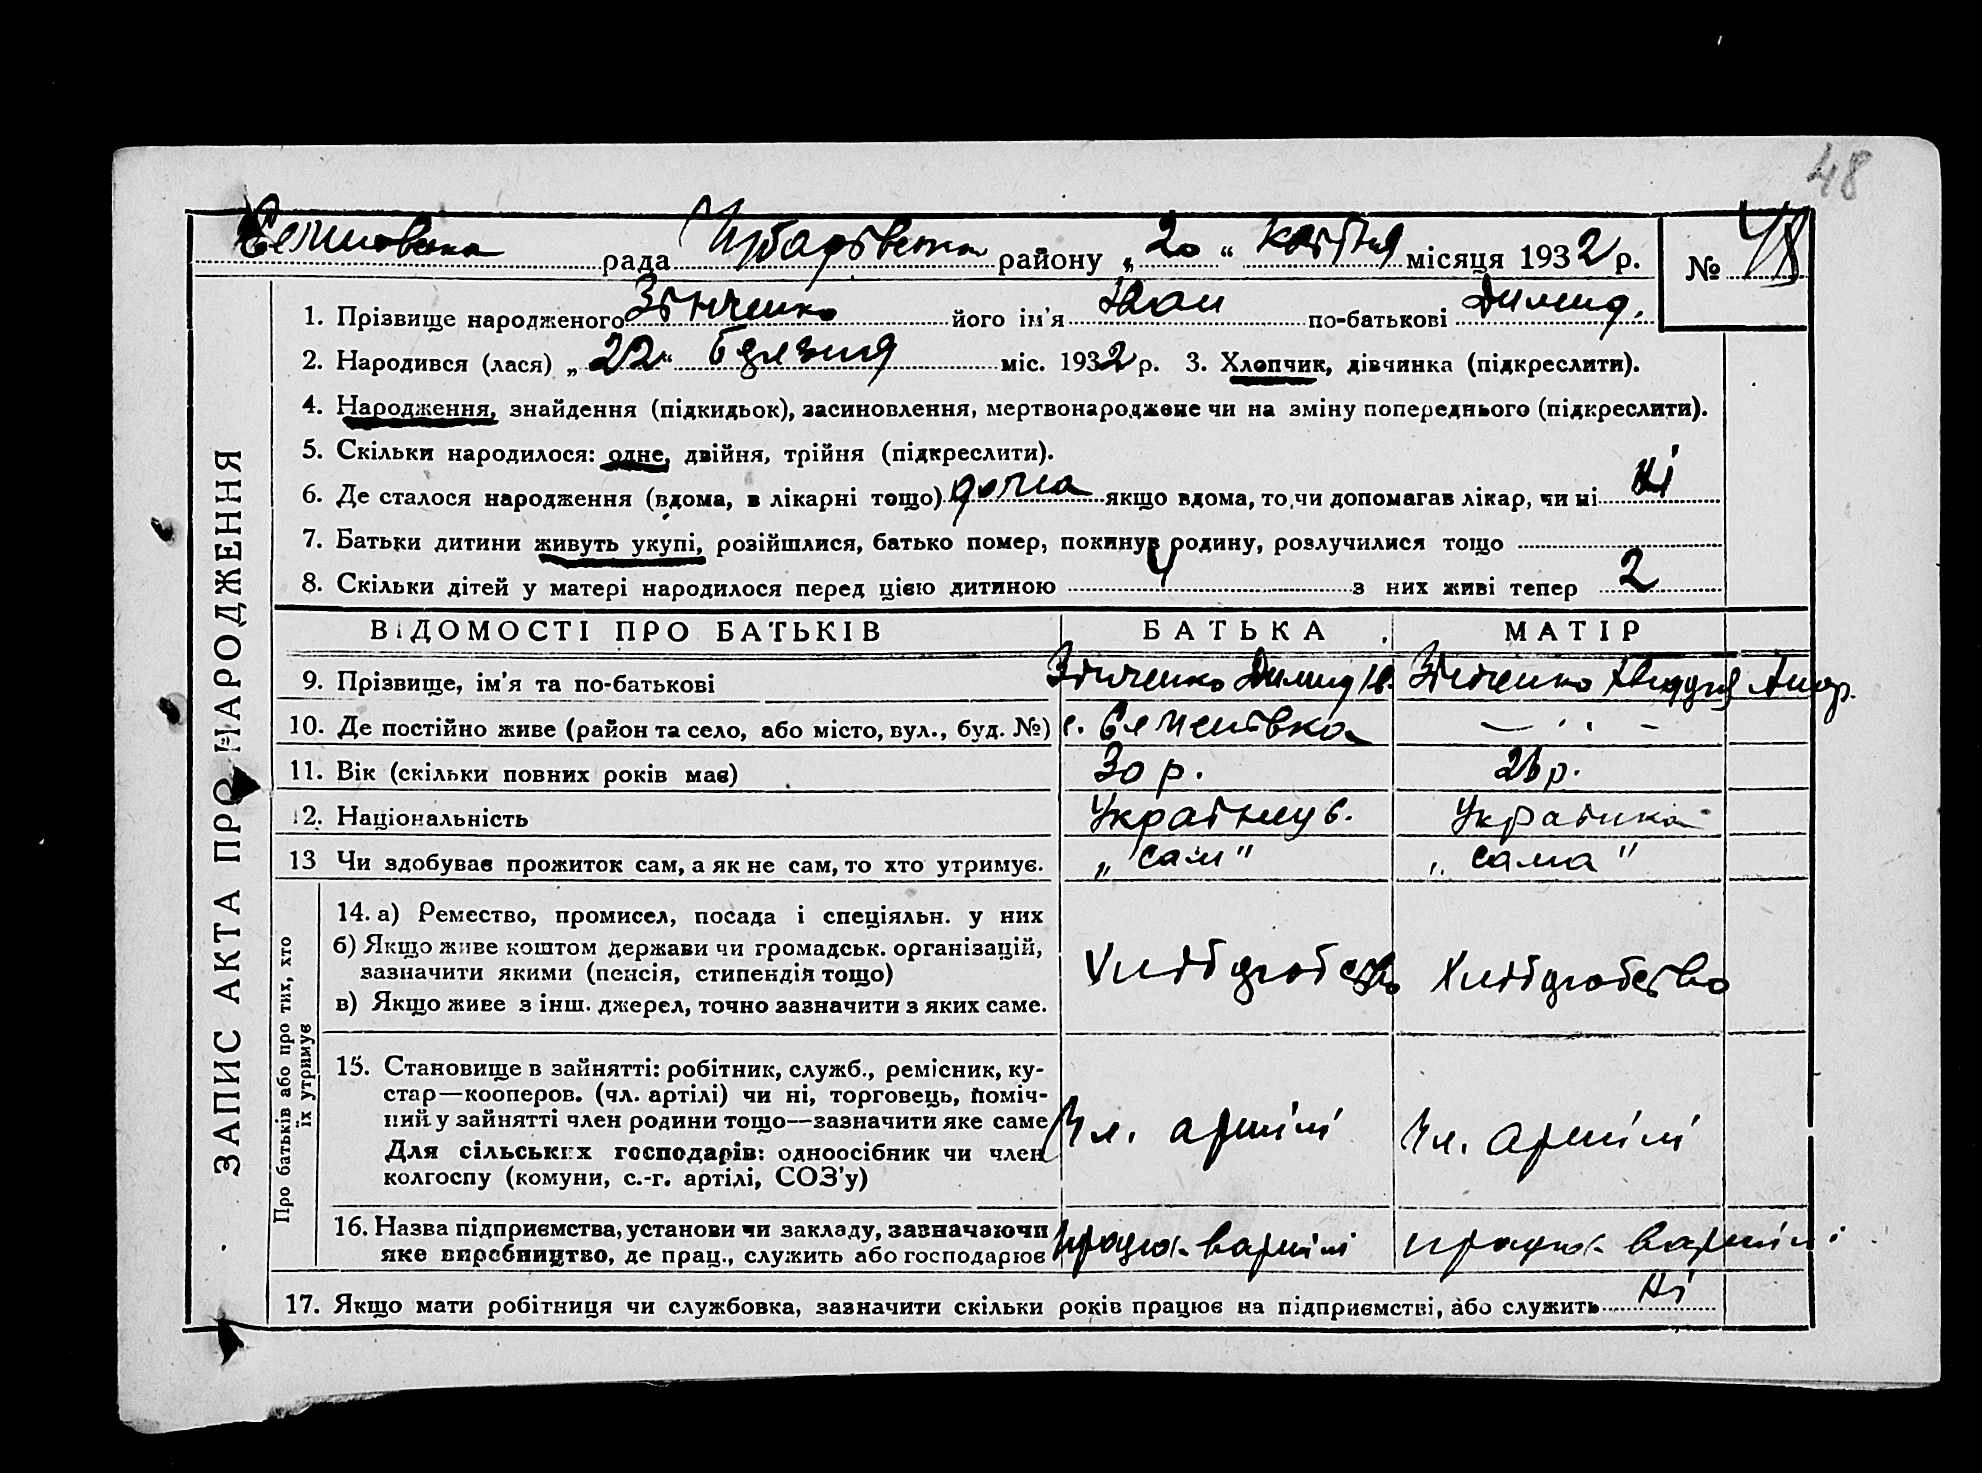 48
рада Чубарівська району „ 20 “ квітня місяця 1932 р. № 48
1. Прізвище народженого Зінченко його ім’я Іван по-батькові Дилид.
2. Народився (лася) „ 22 “ березня міс. 1932 р. 3. Хлопчик, дівчинка (підкреслити).
4. Народження, знайдення (підкидьок), засиновлення, мертвонароджене чи на зміну попереднього (підкреслити).
5. Скільки народилося: одне, двійня, трійня (підкреслити).
6. Де сталося народження (вдома, в лікарні тощо) дома якщо вдома, то чи допомагав лікар, чи ні Ні
7. Батьки дитини живуть укупі, розійшлися, батько помер, покинув родину, розлучилися тощо
8. Скільки дітей у матері народилося перед цією дитиною 4 з них живі тепер 2
ВІДОМОСТІ ПРО БАТЬКІВ БАТЬКА МАТІР
9. Прізвище, ім’я та по-батькові Зінченко Зінченко
10. Де постійно живе (район та село, або місто, вул., буд. №) с. Семенівка — „ —
11. Вік (скільки повних років має) 30 р. 26 р.
12. Національність Українець. Українка
13 Чи здобуває прожиток сам, а як не сам, то хто утримує. „сам" „сама"
Про батьків або про тих, хто їх утримує
14. а) Ремество, промисел, посада і спеціяльн. у них
б) Якщо живе коштом держави чи громадськ. організацій,
зазначити якими (пенсія, стипендія тощо) Хліборобство Хліборобство
в) Якщо живе з інш. джерел, точно зазначити з яких саме.
15. Становище в зайнятті: робітник, служб., ремісник, ку-
стар—кооперов. (чл. артілі) чи ні, торговець, поміч-
ний у зайнятті член родини тощо—зазначити яке саме Чл. артілі Чл. артілі
Для сільських господарів: одноосібник чи член
колгоспу (комуни, с.-г. артілі, СОЗ’у)
16. Назва підприємства, установи чи закладу, зазначаючи
яке виробництво, де прац., служить або господарює працює в артілі працює в артілі
17. Якщо мати робітниця чи службовка, зазначити скільки років працює на підприємстві, або служить Ні
ЗАПИС АКТА ПРО НАРОДЖЕННЯ